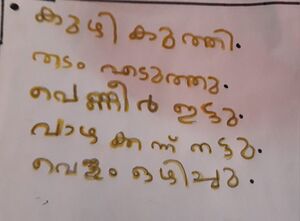 കുഴി കുത്തി.
തടം എടുത്തു.
വെണ്ണീർ ഇട്ടു.
വാഴ കന്ന് നട്ടു.
വെള്ളം ഒഴിച്ചു.